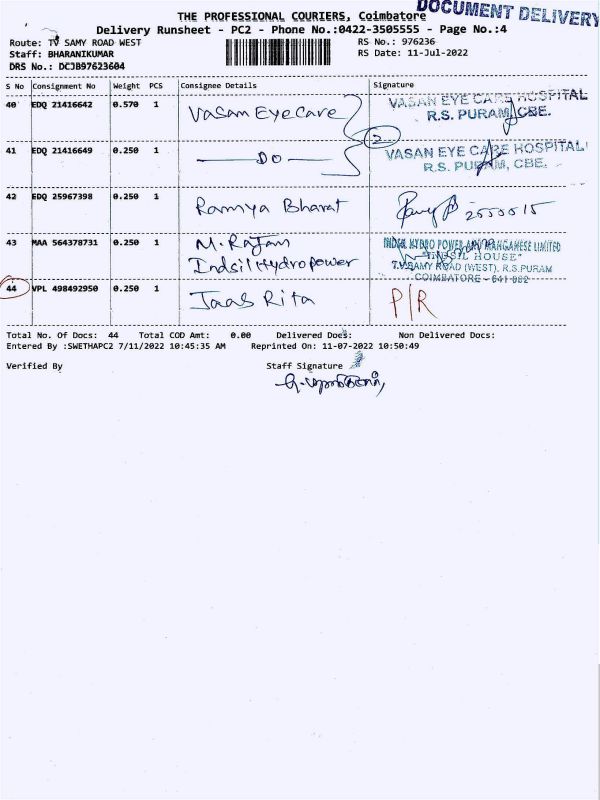 DOCUMENT DELIVERY
THE PROFESSIONAL COURIERS, Coimbatore
Delivery Runsheet - PC2 - Phone No.:0422-3505555 - Page No.:4
Route: TV SAMY ROAD WEST RS No.: 976236
Staff: BHARANIKUMAR RS Date: 11-Jul-2022
DRS No.: DCJB97623604
S No Consignment No Weight PCS Consignee Details Signature
40 EDQ 21416642 0.570 1 Vasan Eye care VASAN EYE CARE HOSPITAL
R.S. PURAM, CBE.
2
41 EDQ 21416649 0.250 1 — DO — VASAN EYE CARE HOSPITAL
R.S. PURAM, CBE.
42 EDQ 25967398 0.250 1 Ramya Bharat 2550015
43 MAA 564378731 0.250 1 M. Rajam INDSIL HYDRO POWER AND MANGANESE LIMITED
Indsil Hydropower "INDSIL HOUSE"
T.V.SAMY ROAD (WEST), R.S.PURAM
COIMBATORE - 641 002
44 VPL 498492950 0.250 1 Jaas Rita P/R
Total No. Of Docs: 44 Total COD Amt: 0.00 Delivered Docs: Non Delivered Docs:
Entered By :SWETHAPC2 7/11/2022 10:45:35 AM Reprinted On: 11-07-2022 10:50:49
Verified By Staff Signature